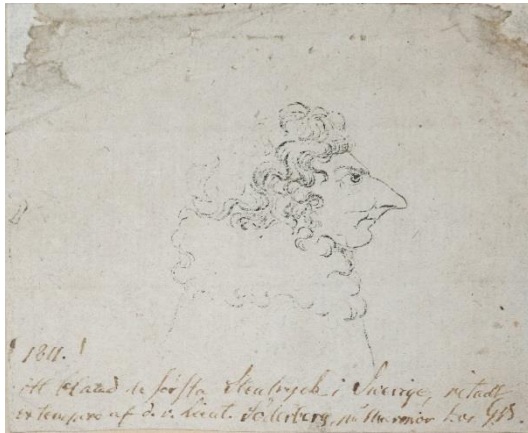 1811.!
Ett bland de första Stentryck i Sverige, ritadt
extempore af d. v. Lieut. Söderberg, på marmor hos